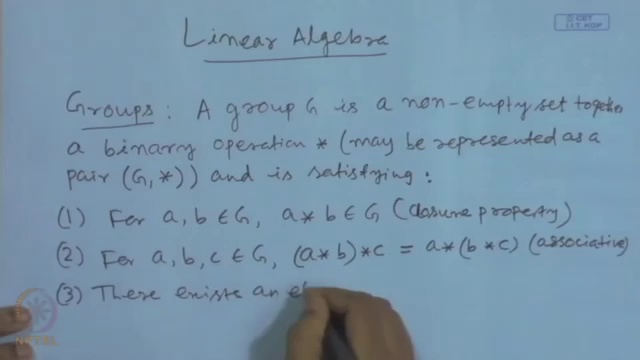 Linear Algebra
© CET
I.I.T. KGP
Groups : A group G is a non-empty set together
a binary operation * (may be represented as a
pair (G, *)) and is satisfying :
(1) For a, b ∈ G, a * b ∈ G (closure property)
(2) For a, b, c ∈ G, (a * b) * c = a * (b * c) (associative)
(3) There exists an el
NPTEL